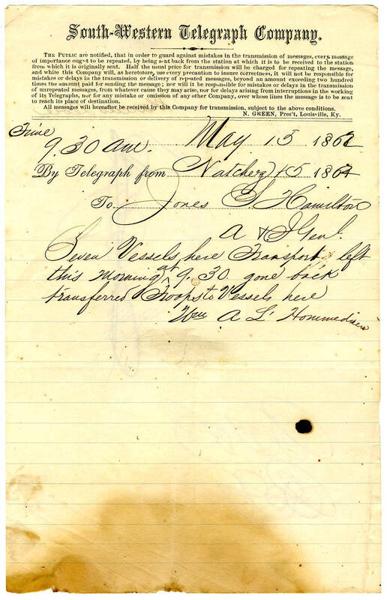 South-Western Telegraph Company.
THE PUBLIC are notified, that in order to guard against mistakes in the transmission of messages, every message
of importance ought to be repeated, by being sent back from the station at which it is to be received to the station
from which it is originally sent. Half the usual price for transmission will be charged for repeating the message,
and while this Company will, as heretofore, use every precaution to insure correctness, it will not be responsible for
mistakes or delays in the transmission or delivery of repeated messages, beyond an amount exceeding two hundred
times the amount paid for sending the message; nor will it be responsible for mistakes or delays in the transmission
of unrepeated messages, from whatever cause they may arise, nor for delays arising from interruptions in the working
of its Telegraphs, nor for any mistake or omission of any other Company, over whose lines the message is to be sent
to reach its place of destination.
All messages will hereafter be received by this Company for transmission, subject to the above conditions.
N. GREEN, Pres't, Louisville, Ky.
Time
9.30 am. May 13 1862
By Telegraph from Natchez 13 1864
To Jones S Hamilton
A & I Genl.
Seven Vessels here Transport left
this morning at 9.30 gone back
transferred Troops to Vessels here
Wm A L' Hommedieu